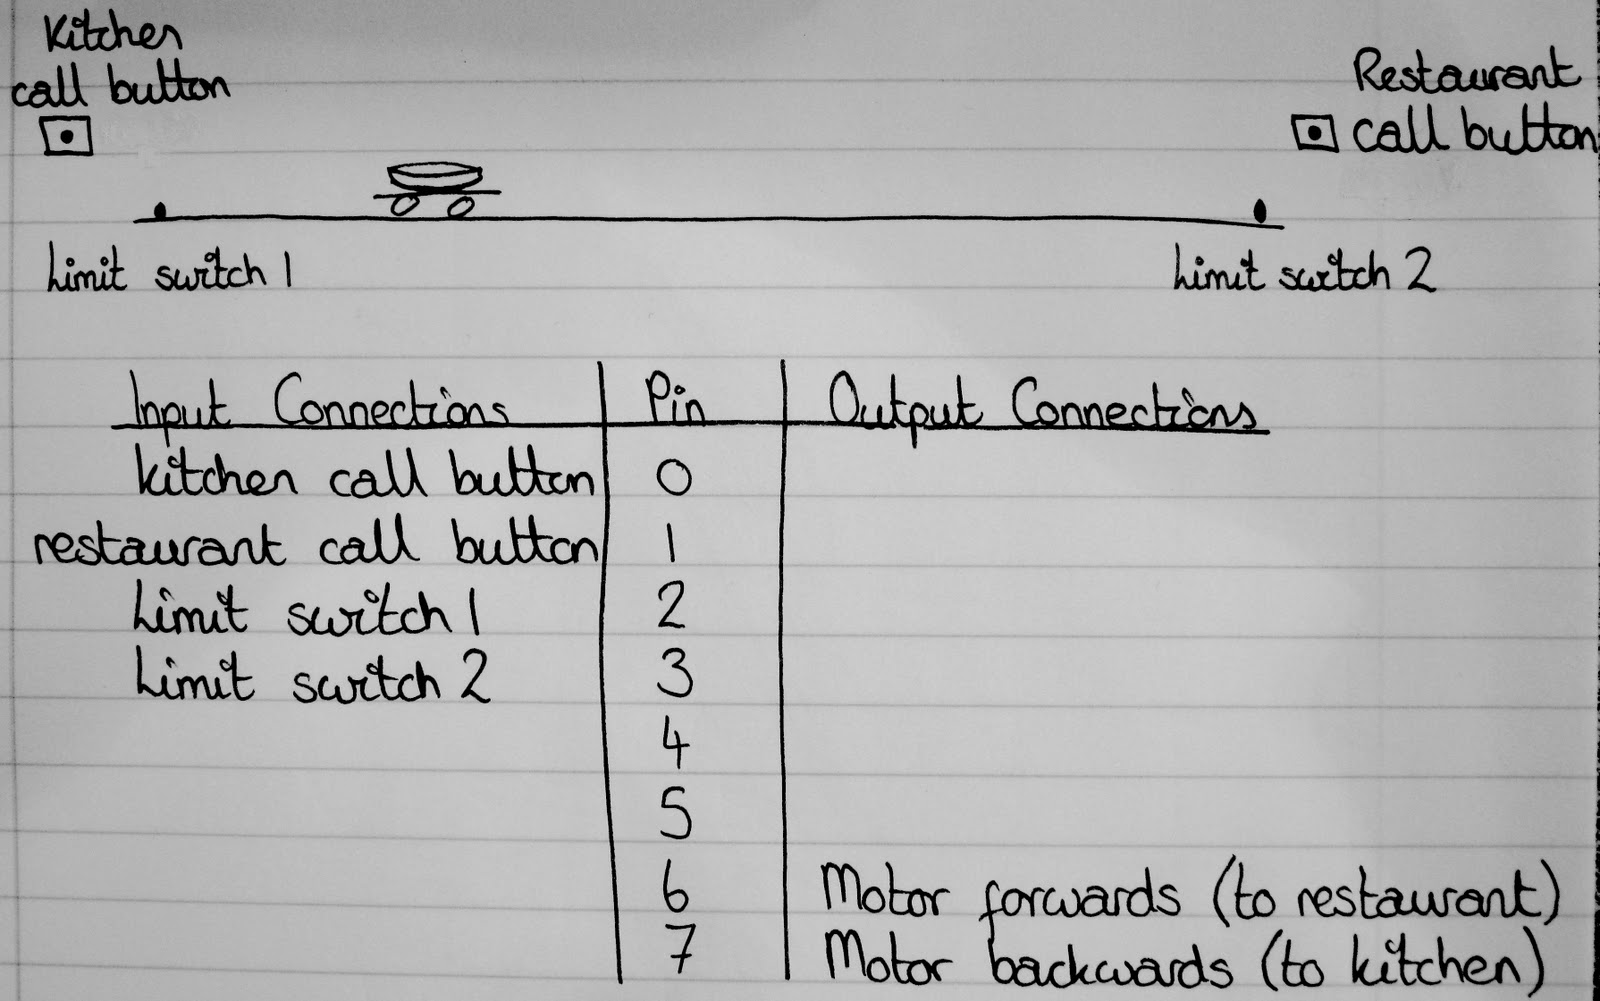 Kitchen
call button
Restaurant
call button
Limit switch 1
Limit switch 2
Input Connections Pin Output Connections
kitchen call button 0
restaurant call button 1
Limit switch 1 2
Limit switch 2 3
4
5
6 Motor forwards (to restaurant)
7 Motor backwards (to kitchen)